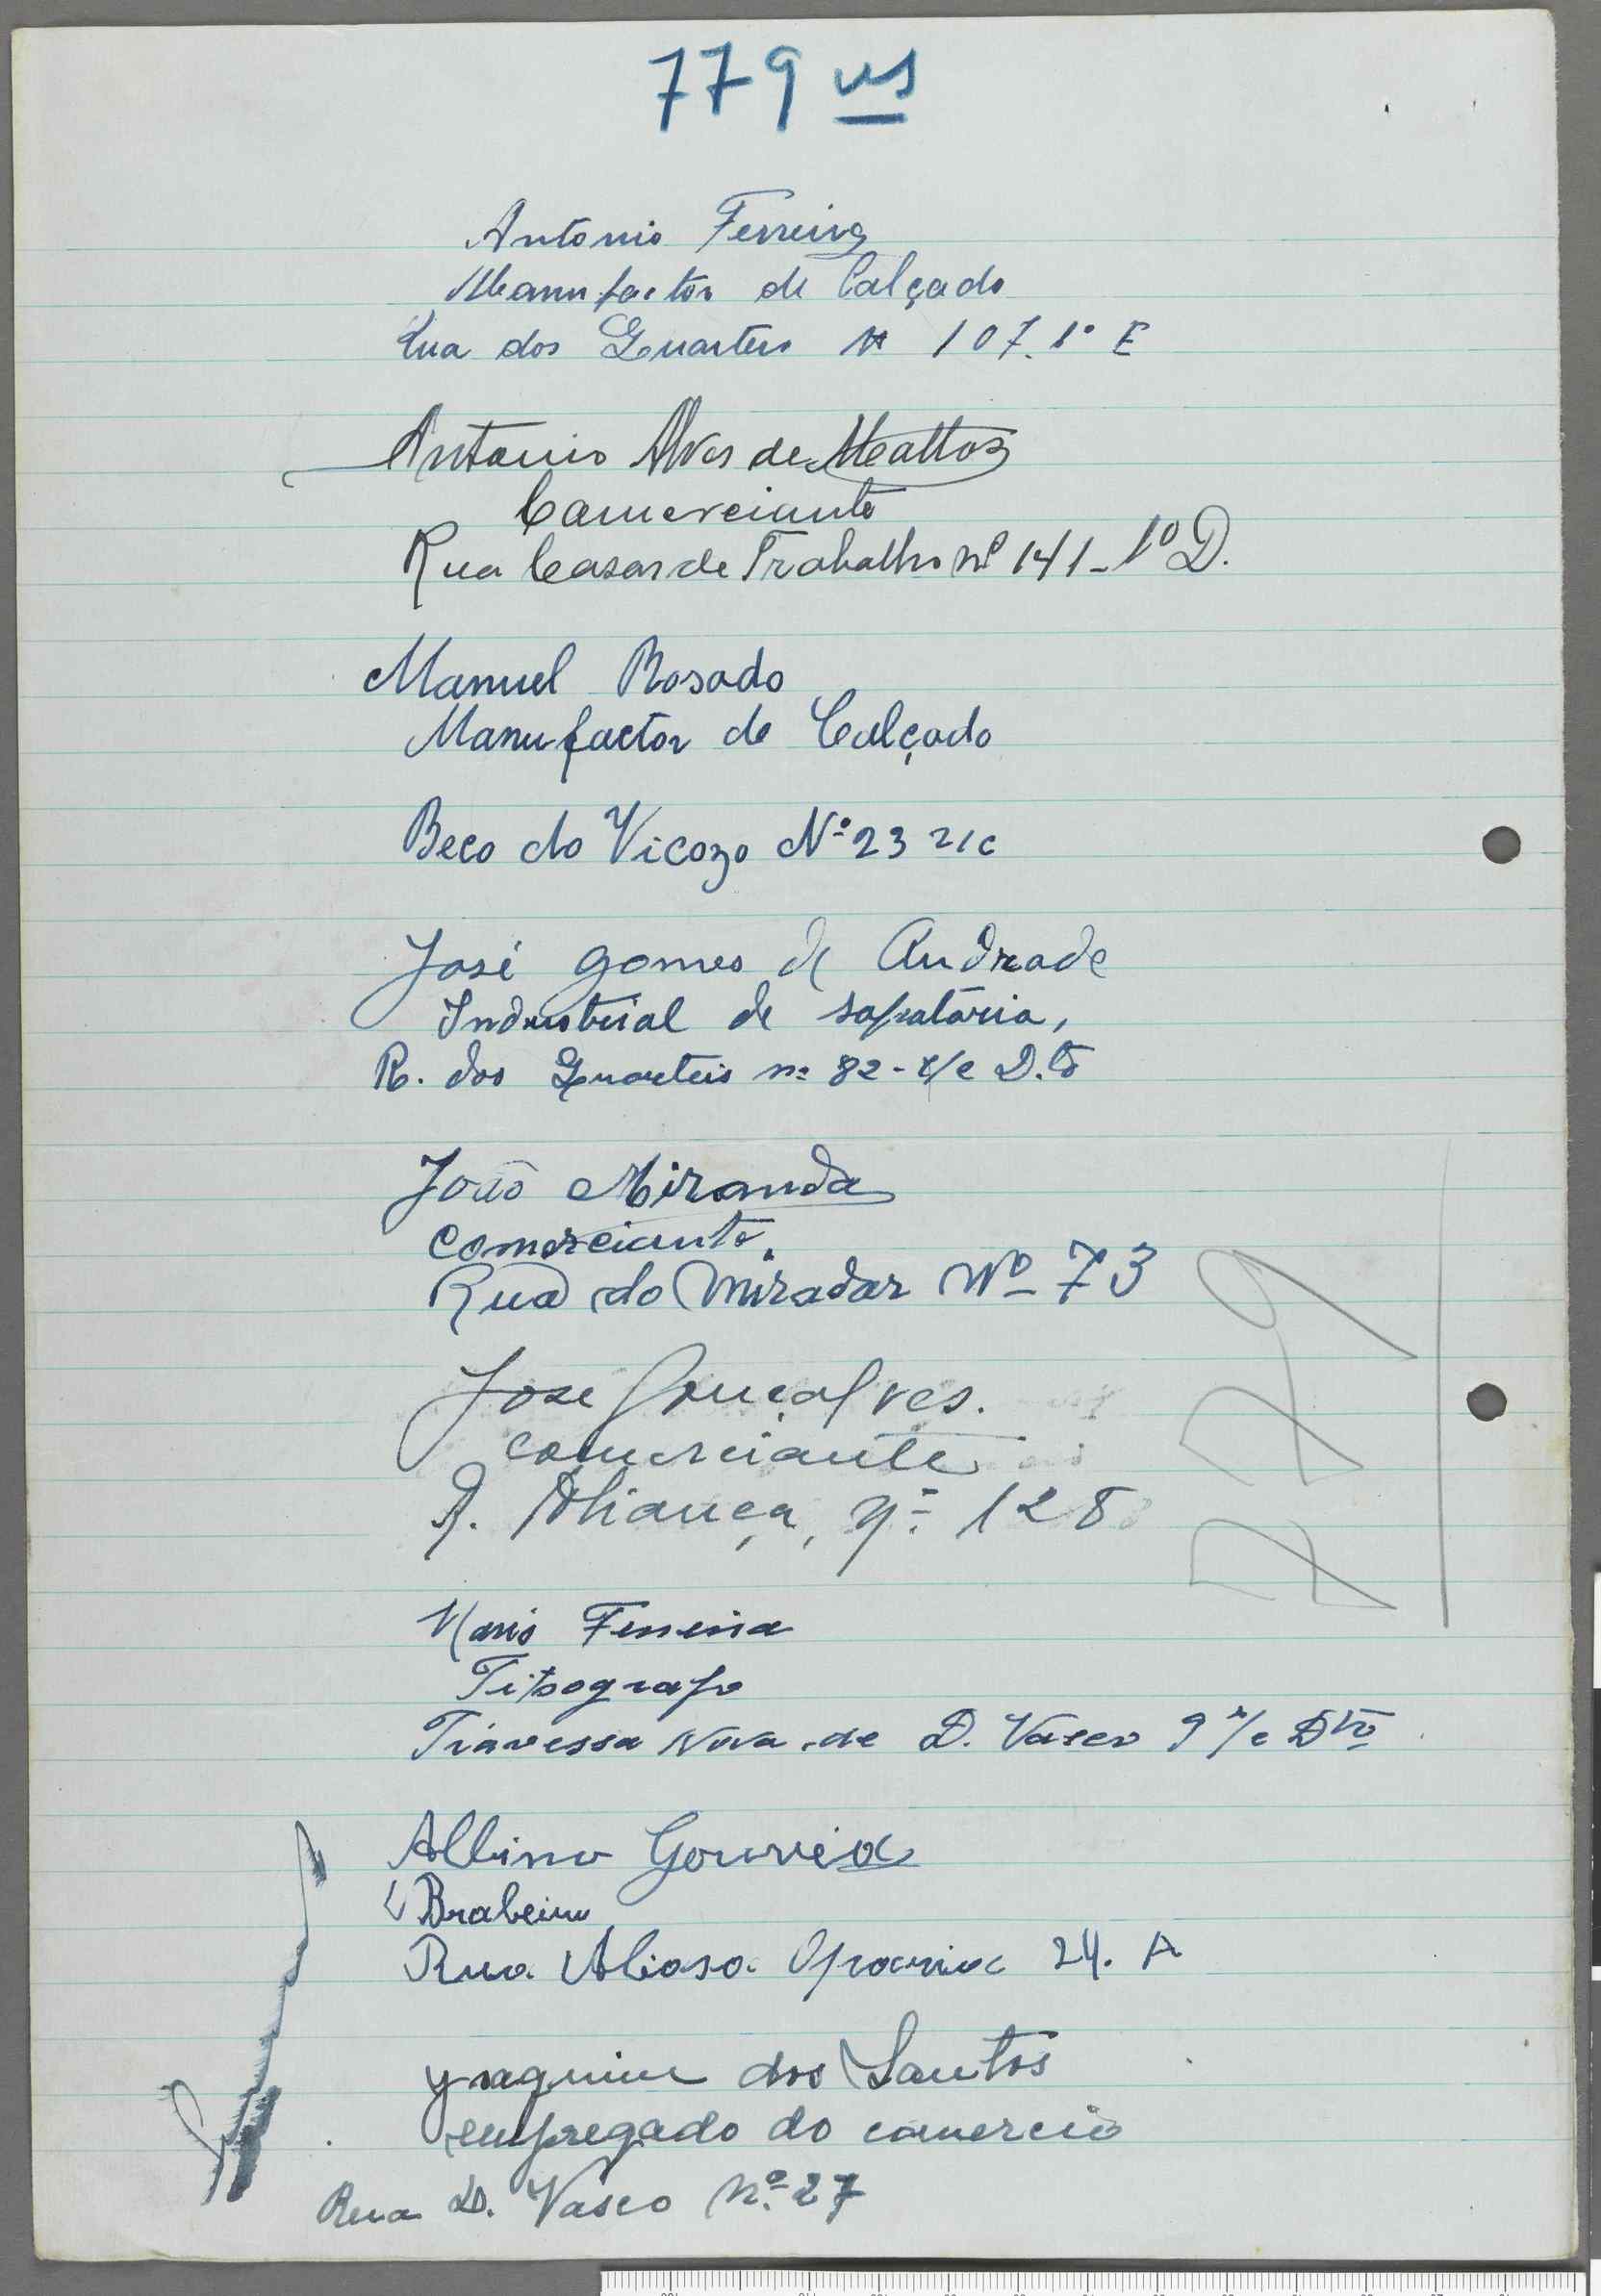 779 vs
Antonio Ferreira
Manufactor de Calçado
Rua dos Quarteis Nº 107. 1º E
Antonio Alves de Mattos
Comerciante
Rua Casas de Trabalho nº 141-1º D.
Manuel Rosado
Manufactor de Calçado
Beco do Vicozo Nº 23 r/c
José Gomes de Andrade
Industrial de sapataria,
R. dos Quarteis nº 82-r/c D.to
João Miranda
comerciante.
Rua do Mirador Nº 73
José Gonçalves.
comerciante
R. Aliança, nº 128
779
Mario Ferreira
Tipografo
Travessa Nova de D. Vasco 9 r/c Dto
Albino Gouveia
Brabeiro
Rua Aliasa Oprariac 24. A
Joaquim dos Santos
empregado do comercio
Rua D. Vasco Nº 27